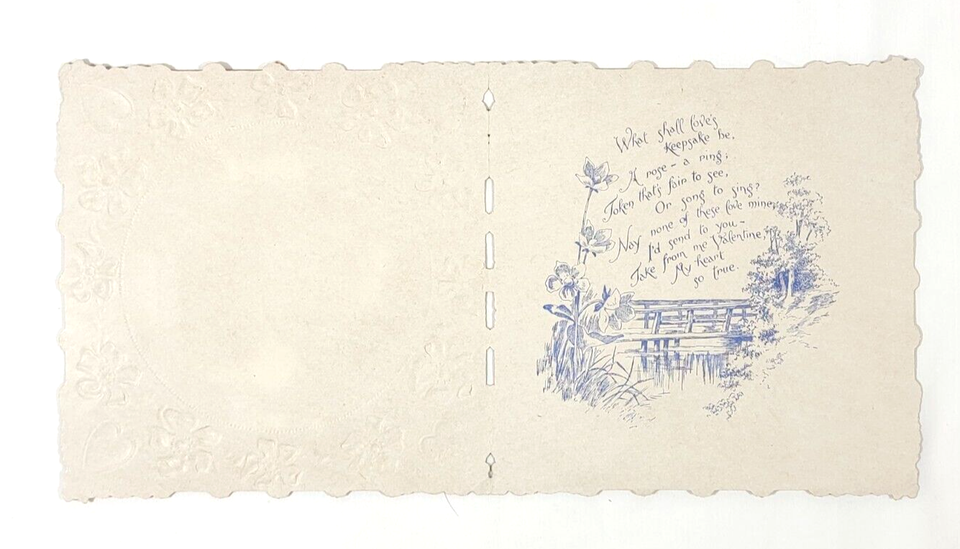 What shall love's
Keepsake be,
A rose - a ring;
Token that's fair to see,
Or song to sing?
Nay none of these love mine,
I'd send to you -
Take from me Valentine,
My heart
so true.